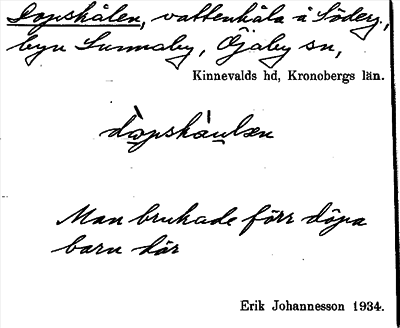 Dopshålen, vattenhåla å Söderg.,
byn Sunnaby, Öjaby sn,
Kinnevalds hd, Kronobergs län.
dòpshàulæn
Man brukade förr döpa
barn där
Erik Johannesson 1934.